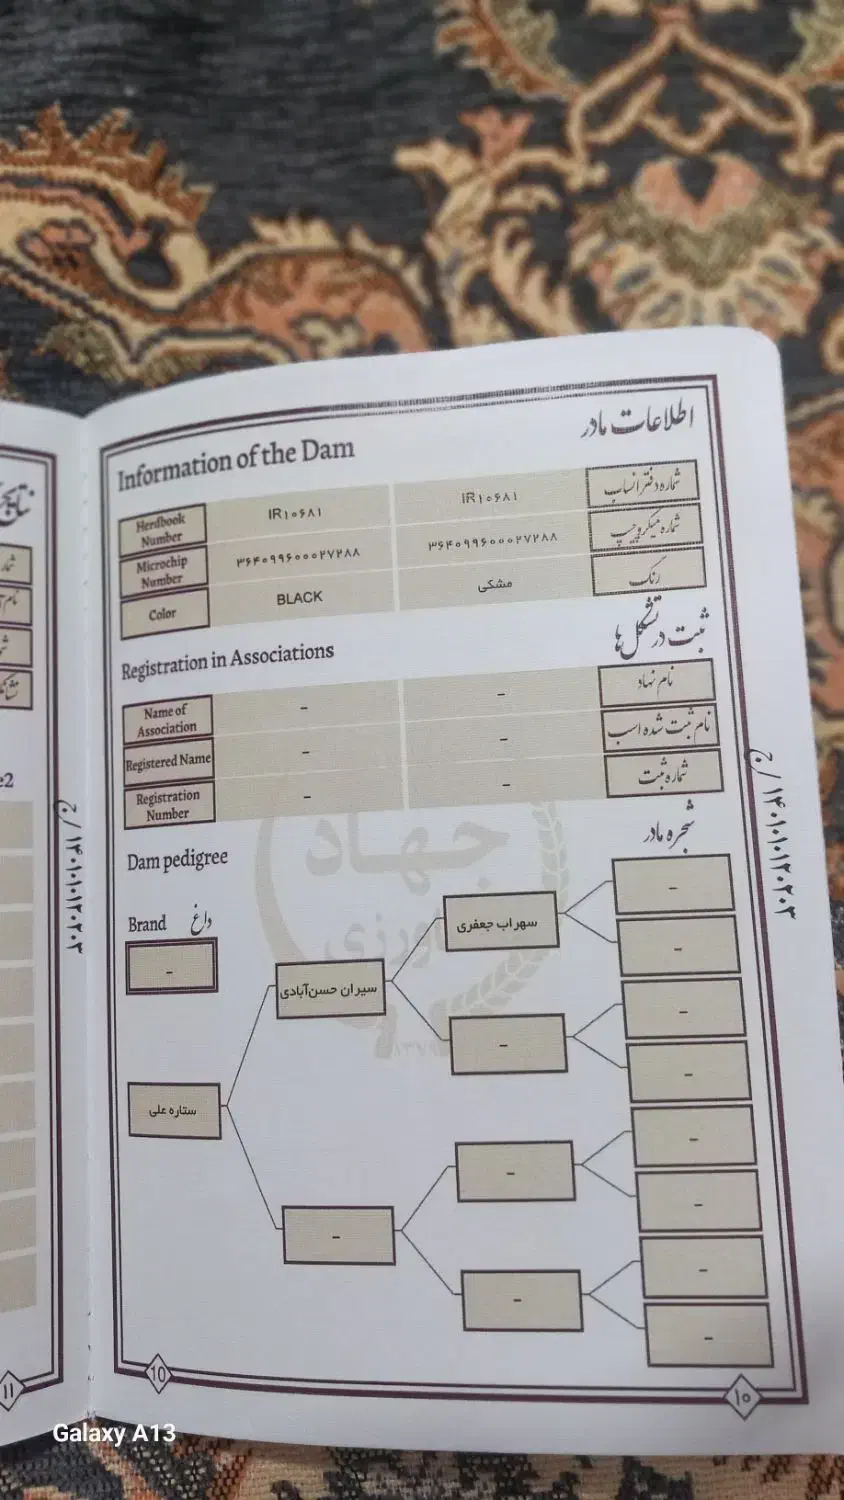 اطلاعات مادر
Information of the Dam
Herdbook Number IR۱۰۶۸۱ IR۱۰۶۸۱ شماره دفتر انساب
Microchip Number ۳۶۴۰۹۹۶۰۰۰۲۷۲۸۸ ۳۶۴۰۹۹۶۰۰۰۲۷۲۸۸ شماره میکروچیپ
Color BLACK مشکی رنگ
ثبت در تشکل‌ها
Registration in Associations
Name of Association - - نام نهاد
Registered Name - - نام ثبت شده اسب
Registration Number - - شماره ثبت
شجره مادر
Dam pedigree
Brand داغ
-
ستاره علی
سیران حسن‌آبادی
-
سهراب جعفری
-
-
-
-
-
-
-
-
-
-
-
جهاد
۱۴۰۱۰۱۰۱۲۰۲۰۳/ج
۱۴۰۱۰۱۰۱۲۰۲۰۳/ج
e2
10
۱۰
۱۱
Galaxy A13